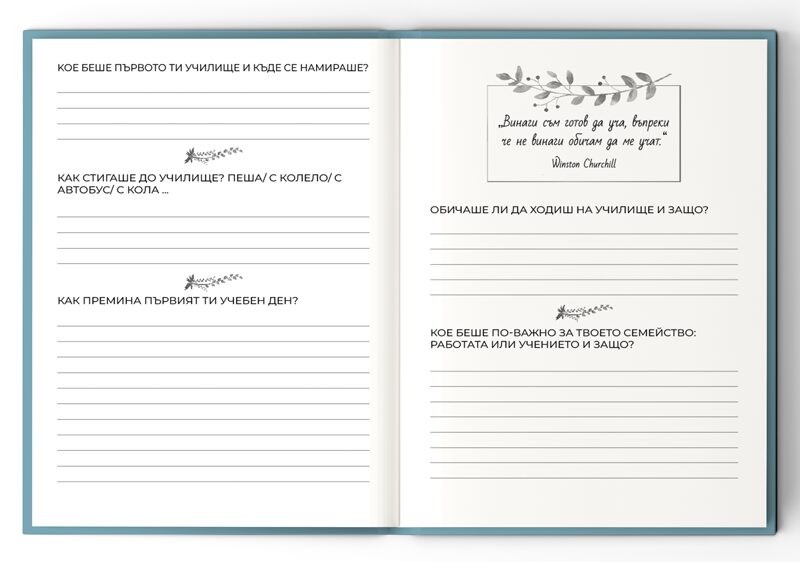 КОЕ БЕШЕ ПЪРВОТО ТИ УЧИЛИЩЕ И КЪДЕ СЕ НАМИРАШЕ?
КАК СТИГАШЕ ДО УЧИЛИЩЕ? ПЕША/ С КОЛЕЛО/ С
АВТОБУС/ С КОЛА ...
КАК ПРЕМИНА ПЪРВИЯТ ТИ УЧЕБЕН ДЕН?
„Винаги съм готов да уча, въпреки
че не винаги обичам да ме учат.“
Winston Churchill
ОБИЧАШЕ ЛИ ДА ХОДИШ НА УЧИЛИЩЕ И ЗАЩО?
КОЕ БЕШЕ ПО-ВАЖНО ЗА ТВОЕТО СЕМЕЙСТВО:
РАБОТАТА ИЛИ УЧЕНИЕТО И ЗАЩО?